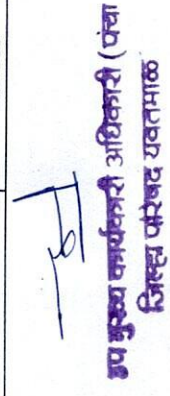 उप मुख्य कार्यकारी अधिकारी (पंचा
जिल्हा परिषद यवतमाळ